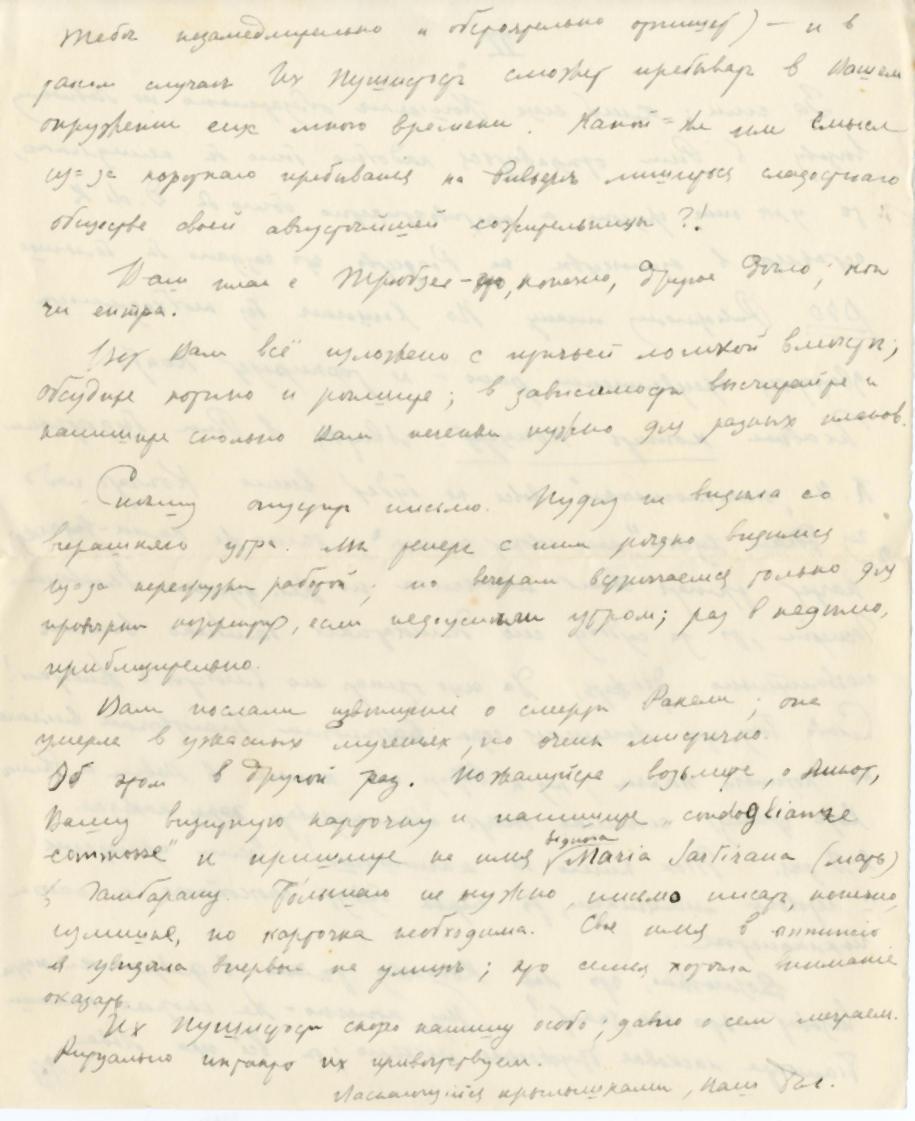 тебѣ незамедлительно и обстоятельно отпишет) — и в
таком случаѣ Их Пушистость сможет пребывать в Вашем
окружении еще много времени. Какой-же им смысл
из-за короткаго пребывания на лишиться сладостнаго
общества своей августѣйшей сожительницы?!
Вам план с это, конечно, другое дѣло;
чи ентра.
Вот Вам всё изложено с логикой вмѣстѣ;
обсудите и рѣшите; в зависимости высчитайте и
напишите сколько Вам нужно для разных планов.
Спѣшу письмо. не видѣла со
вчерашняго утра. Мы теперь с ним рѣдко видимся
из-за перегрузки работой; по вечерам встрѣчаемся только для
провѣрки корректур, если недоуспѣли утром; раз в недѣлю,
приблизительно.
Вам послали извѣщение о смерти Ракели; она
умерла в ужасных мученьях, но очень мистично.
Об этом в другой раз. Пожалуйста, возьмите, о
Вашу визитную карточку и напишите „condoglianze
commosse" и пришлите на имя Signora Maria Sartirana (мать)
Гамбарану. Бо́льшаго не нужно, письмо писать, конечно,
излишне, но карточка необходима. Свое имя в
я увидѣла впервые на улицѣ; это семья хотѣла внимание
оказать.
Их Пушистости скоро напишу особо; давно о сем мечтаем.
Ритуально их привѣтствуем.
крылышками, Ваш